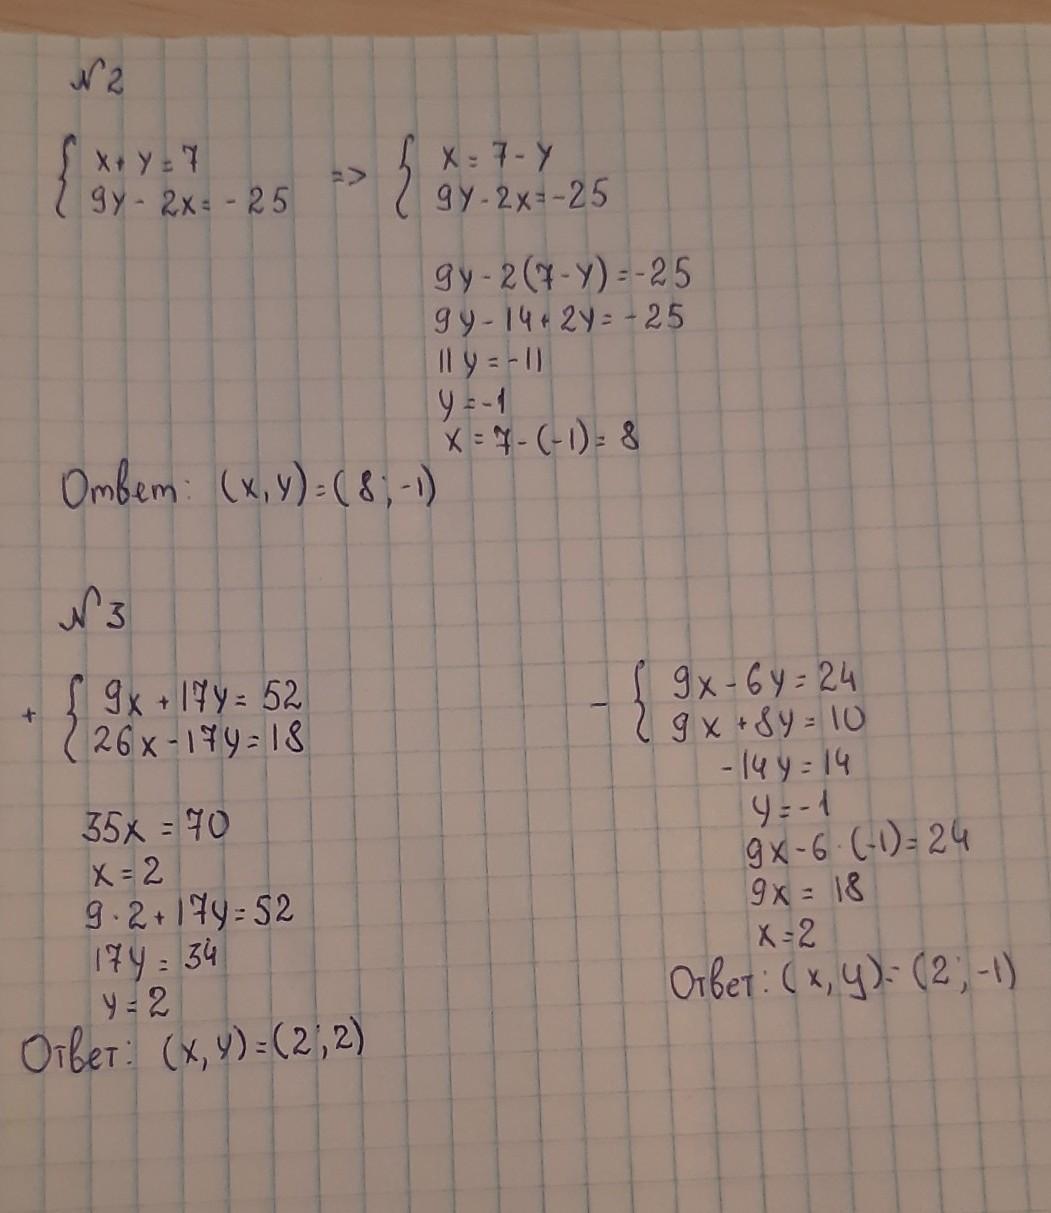 №2
{ x+y=7 => { x=7-y
9y-2x=-25 9y-2x=-25
9y-2(7-y)=-25
9y-14+2y=-25
11y=-11
y=-1
x=7-(-1)=8
Ответ: (x,y)=(8;-1)
№3
+ { 9x+17y=52
26x-17y=18
35x=70
x=2
9·2+17y=52
17y=34
y=2
Ответ: (x,y)=(2;2)
- { 9x-6y=24
9x+8y=10
-14y=14
y=-1
9x-6·(-1)=24
9x=18
x=2
Ответ: (x,y)=(2;-1)